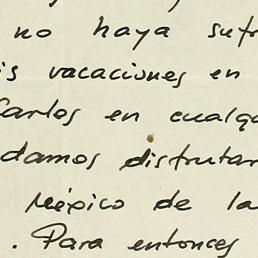 no haya sufr
is vacaciones en
Carlos en cualqu
damos disfrutar
México de la
. Para entonces